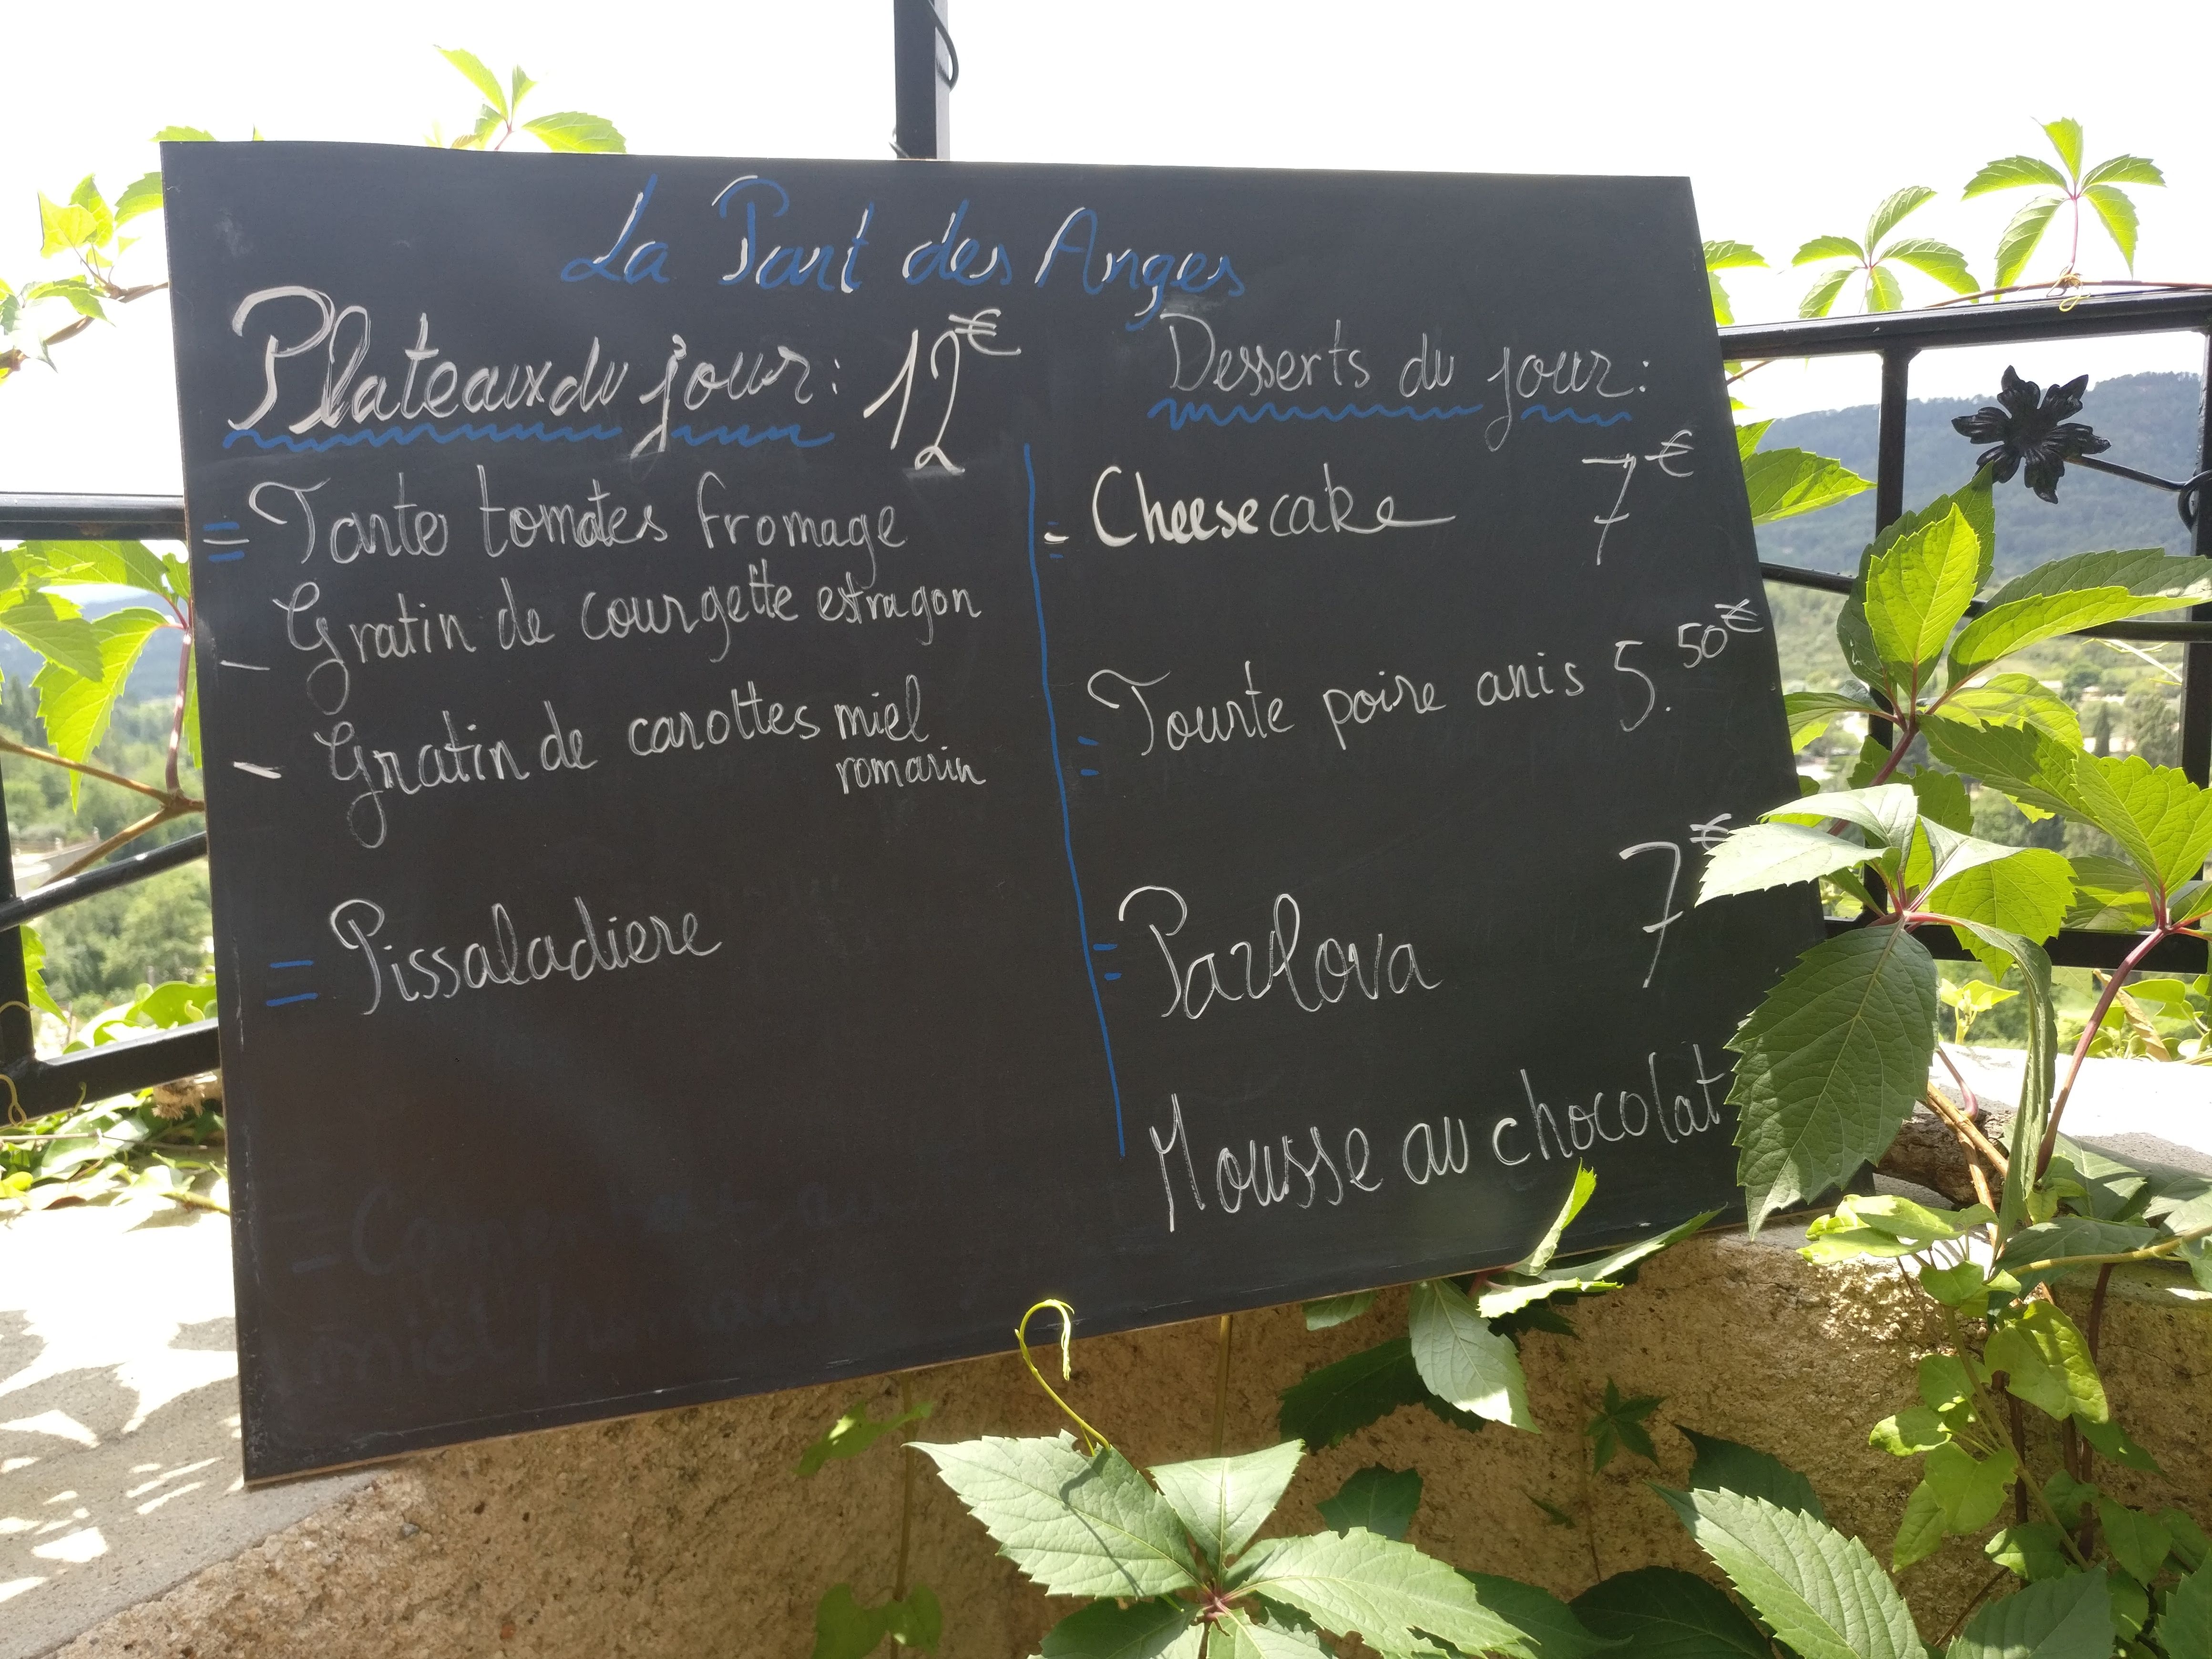 La Part des Anges
Plateaux du jour : 12€
= Tarte tomates fromage
- Gratin de courgette estragon
- Gratin de carottes miel
romarin
= Pissaladiere
Desserts du jour :
- Cheesecake 7€
= Tourte poire anis 5.50€
= Pavlova 7€
Mousse au chocolat